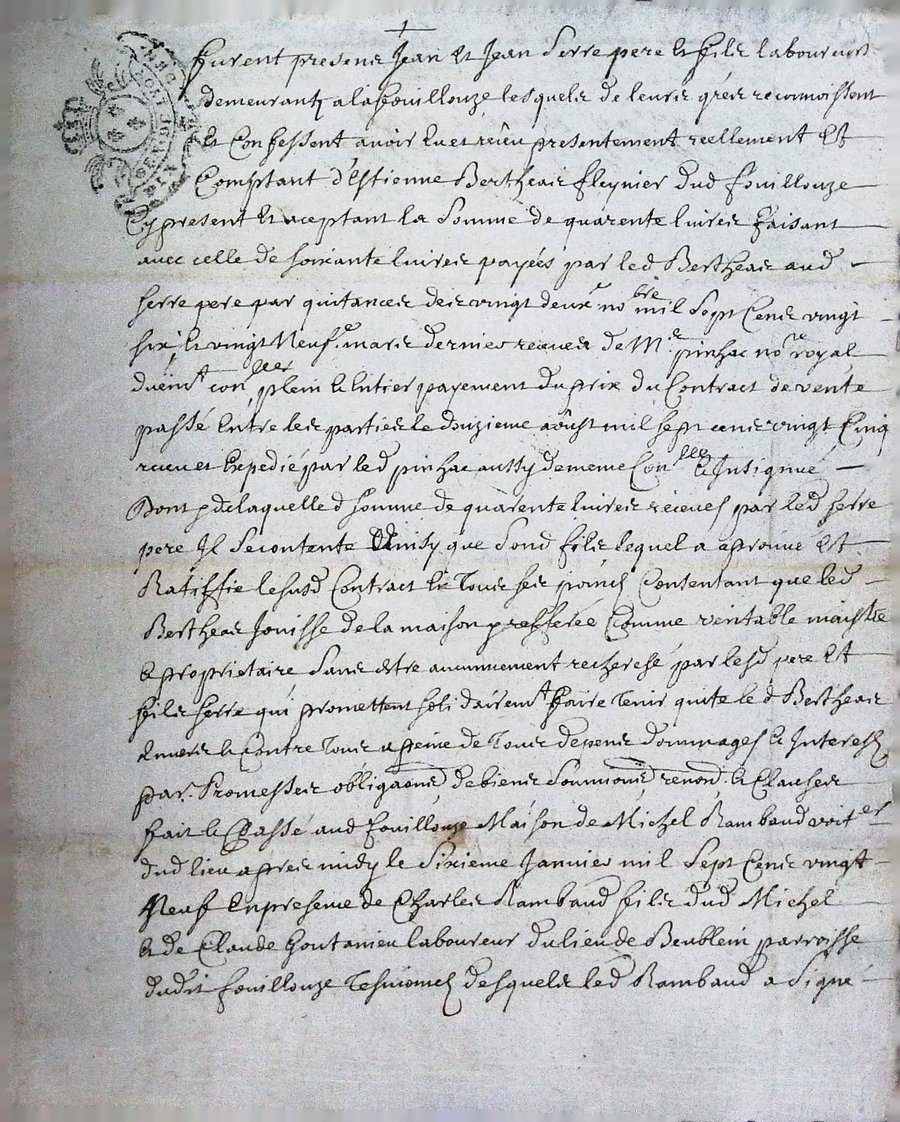 furent presens Jean Et Jean Serre pere et fils laboureurs
demeurantz a lafouillouze lesquels de leurs gres reconoissent
Et Confessent avoir Eu et reçeu presentement reellement Et
Comptant d'Estienne Bertheas fleynier dud fouillouze
Cy present Et aceptant la Somme de quarente livres faisant
avec celle de soixante livres payées par led Bertheas aud
serre pere par quitances des vingt deux no bre mil Sept Cens vingt
six, Et vingt Neuf mars dernier receues de Me pinhac nore royal
duemt con llées plein Et Entier payement du prix du Contract de vente
passé Entre les parties le douzieme aoust mil sept cens vingt Cinq
receu et Expedié par led pinhac aussy de meme Con llé Et Insignué
Dont de laquelle d somme de quarente livres receues par led serre
pere Il Se contente Ainsy que Sond fils lequel a aprouvé Et
Ratiffié le susd Contract En Tous ses points Consentant que led
Bertheas Jouisse de la maison Comme veritable maistre
Et proprietaire Sans estre aucunement recherché par lesd pere Et
fils serre qui promettent solidairemt faire Tenir quite le d Bertheas
Envers Et Contre Tous a peine de Tous depens dommages Et Interest
par Promesses obligaons de biens Soumions renond Et Clauses
fait Et Passé aud fouillouze Maison de Michel Rambaud voiter
dud lieu apres midy le Sixieme Janvier mil Sept Cens vingt
Neuf En presence de Charles Rambaud fils dud Michel
Et de Claude laboureur du lieu de parroisse
dudit fouillouze Tesmoins desquels led Rambaud a Signé